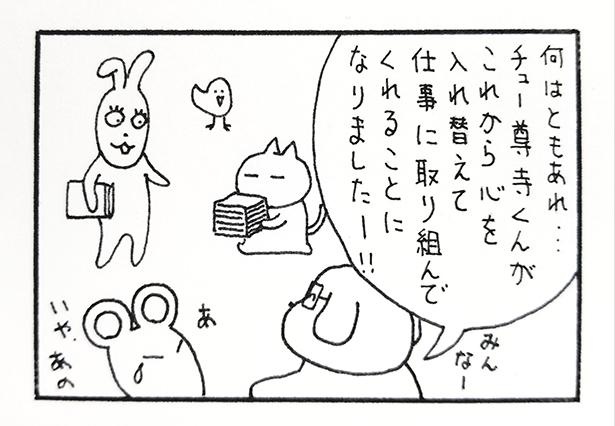 何はともあれ…
チュー尊寺くんが
これから心を
入れ替えて
仕事に取り組んで
くれることに
なりましたー!!
みん
なー
あ
いや、あの